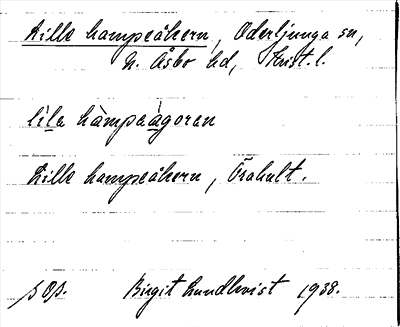 Lille hampeåkern, Oderljunga sn,
N. Åsbo hd, Krist. l.
lìla hàmpeàgoren
Lille hampeåkern, Örahult.
s Op. Birgit Lundkvist 1938.